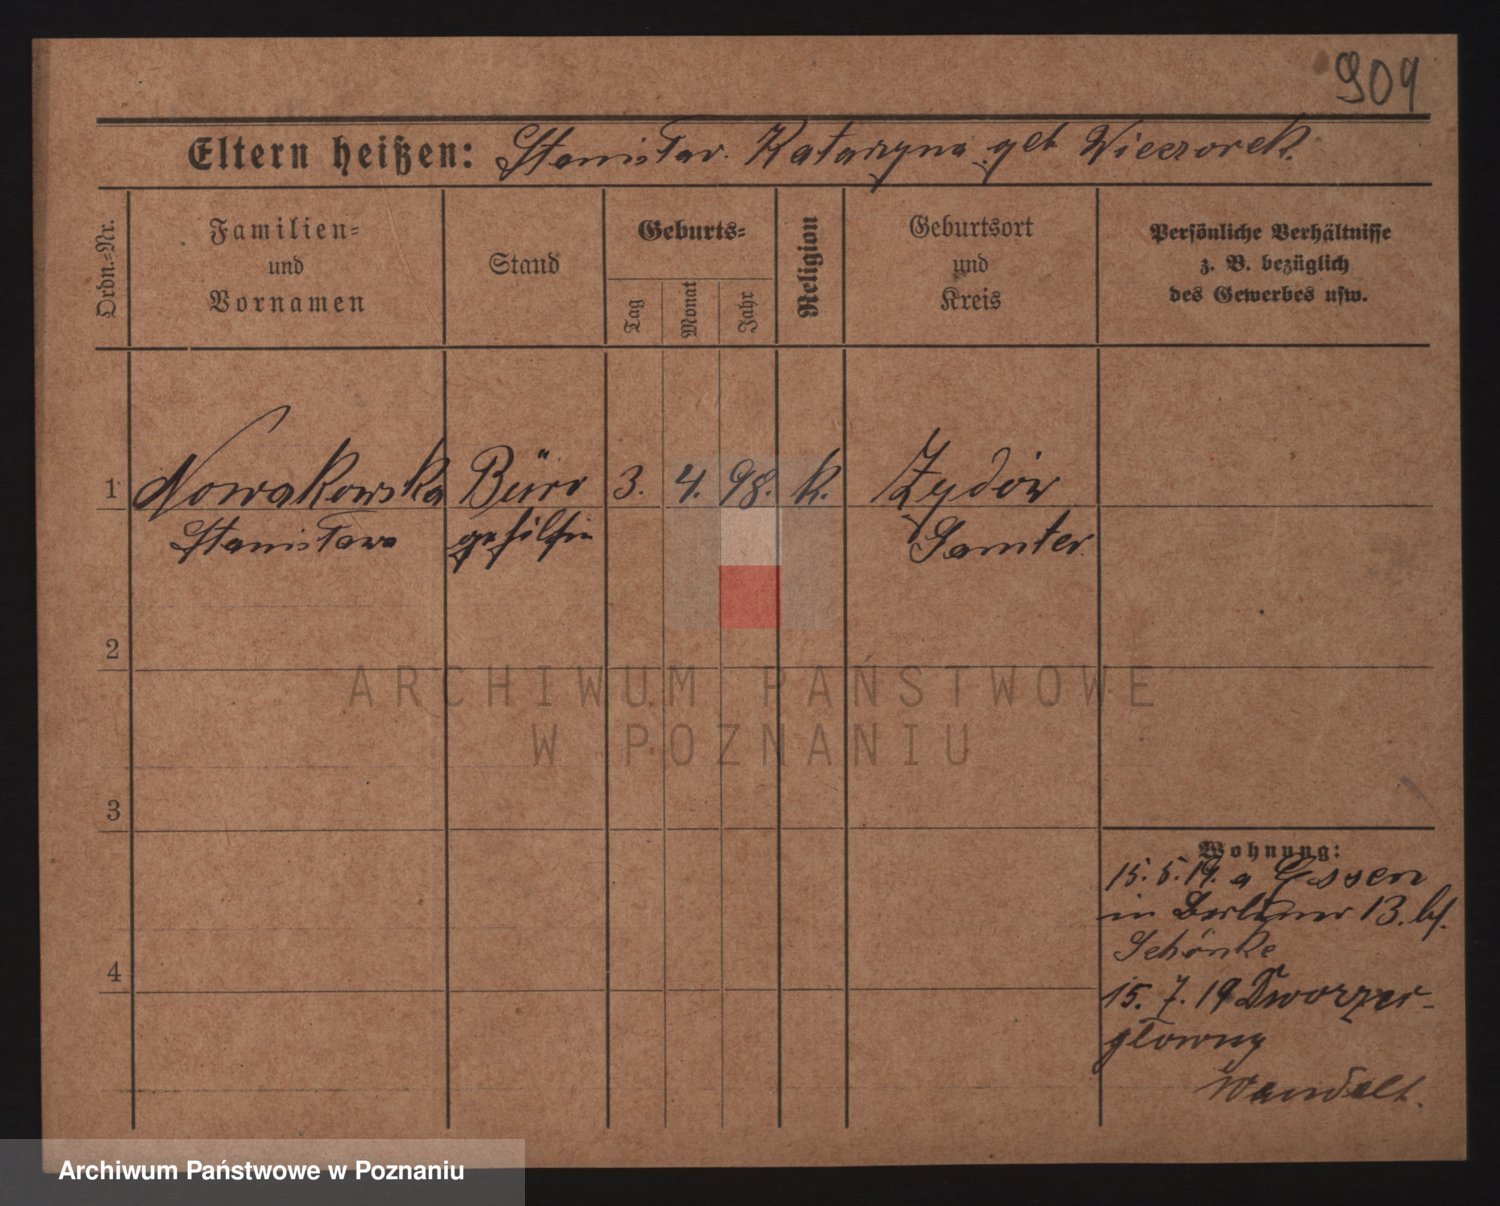 909
Eltern heißen: Stanisław. Katarzyna geb Wieczorek.
Ordn.-Nr.
Familien-
und
Vornamen
Stand
Geburts-
Tag
Monat
Jahr
Religion
Geburtsort
und
Kreis
Persönliche Verhältnisse
z. B. bezüglich
des Gewerbes usw.
1 Nowakowska Büro 3. 4. 98. k. Żydów
Stanisława gehilfin Samter.
2
ARCHIWUM PAŃSTWOWE
W POZNANIU
3
Wohnung:
15. 5. 19. a Essen
in Berliner 13. bf.
Schönke
4
15. 7. 19 Dworzec-
głowny
Wandelt.
Archiwum Państwowe w Poznaniu